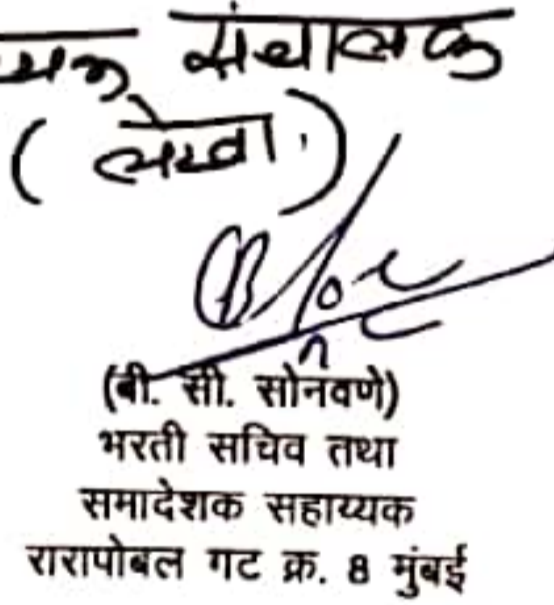 संचालक
(लेखा.)
(बी. सी. सोनवणे)
भरती सचिव तथा
समादेशक सहाय्यक
रारापोबल गट क्र. 8 मुंबई